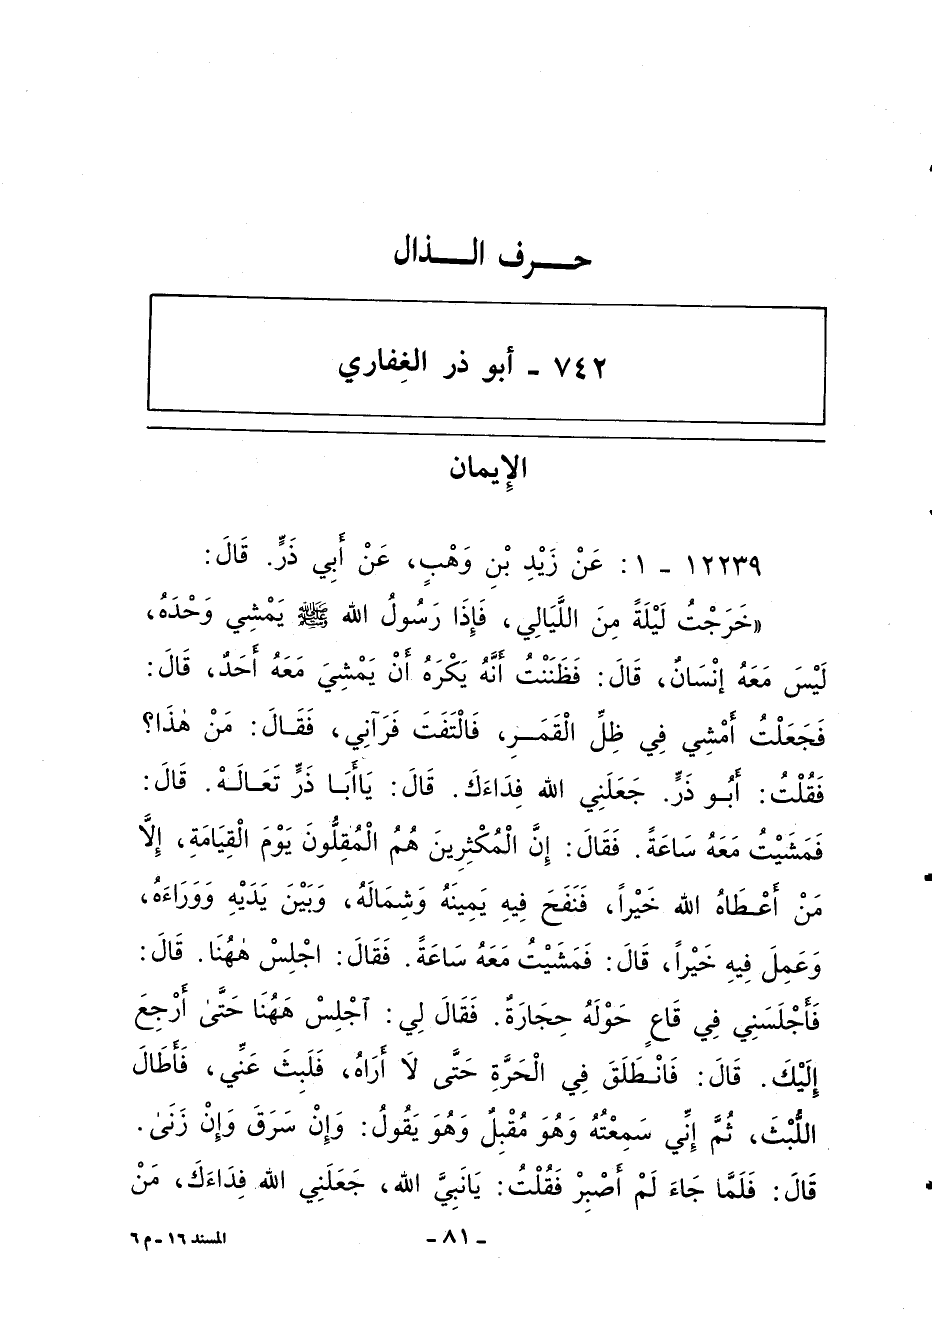 حـــرف الـــذال
٧٤٢ - أبو ذر الغِفاري
الإِيمان
١٢٢٣٩ - ١ : عَنْ زَيْدِ بْنِ وَهْبٍ، عَنْ أَبِي ذَرٍّ. قَالَ:
«خَرَجْتُ لَيْلَةً مِنَ اللَّيَالِي، فَإِذَا رَسُولُ الله ﷺ يَمْشِي وَحْدَهُ،
لَيْسَ مَعَهُ إِنْسَانٌ، قَالَ: فَظَنَنْتُ أَنَّهُ يَكْرَهُ أَنْ يَمْشِيَ مَعَهُ أَحَدٌ، قَالَ:
فَجَعَلْتُ أَمْشِي فِي ظِلِّ الْقَمَـرِ، فَالْتَفَتَ فَرَآنِي، فَقَـالَ: مَنْ هٰذَا؟
فَقُلْتُ: أَبُـو ذَرٍّ. جَعَلَنِي الله فِدَاءَكَ. قَالَ: يَاأَبَا ذَرٍّ تَعَـالَـهْ. قَالَ:
فَمَشَيْتُ مَعَهُ سَاعَةً. فَقَالَ: إِنَّ الْمُكْثِرِينَ هُمُ الْمُقِلُّونَ يَوْمَ الْقِيَامَةِ، إِلَّا
مَنْ أَعْـطَاهُ الله خَيْراً، فَنَفَحَ فِيهِ يَمِينَهُ وَشِمَالَهُ، وَبَيْنَ يَدَيْهِ وَوَرَاءَهُ،
وَعَمِلَ فِيهِ خَيْراً، قَالَ: فَمَشَيْتُ مَعَهُ سَاعَةً. فَقَالَ: اجْلِسْ هٰهُنَا. قَالَ:
فَأَجْلَسَنِي فِي قَاعٍ حَوْلَهُ حِجَارَةٌ. فَقَالَ لِي: ٱجْلِسْ هَهُنَا حَتَّىٰ أَرْجِعَ
إِلَيْكَ. قَالَ: فَانْـطَلَقَ فِي الْحَرَّةِ حَتَّى لَا أَرَاهُ، فَلَبِثَ عَنِّي، فَأَطَالَ
اللُّبْثَ، ثُمَّ إِنِّي سَمِعْتُهُ وَهُوَ مُقْبِلٌ وَهُوَ يَقُولُ: وَإِنْ سَرَقَ وَإِنْ زَنَىٰ.
قَالَ: فَلَمَّا جَاءَ لَمْ أَصْبِرْ فَقُلْتُ: يَانَبِيَّ الله، جَعَلَنِي الله فِدَاءَكَ، مَنْ
- ٨١ -
المسند ١٦ - م ٦